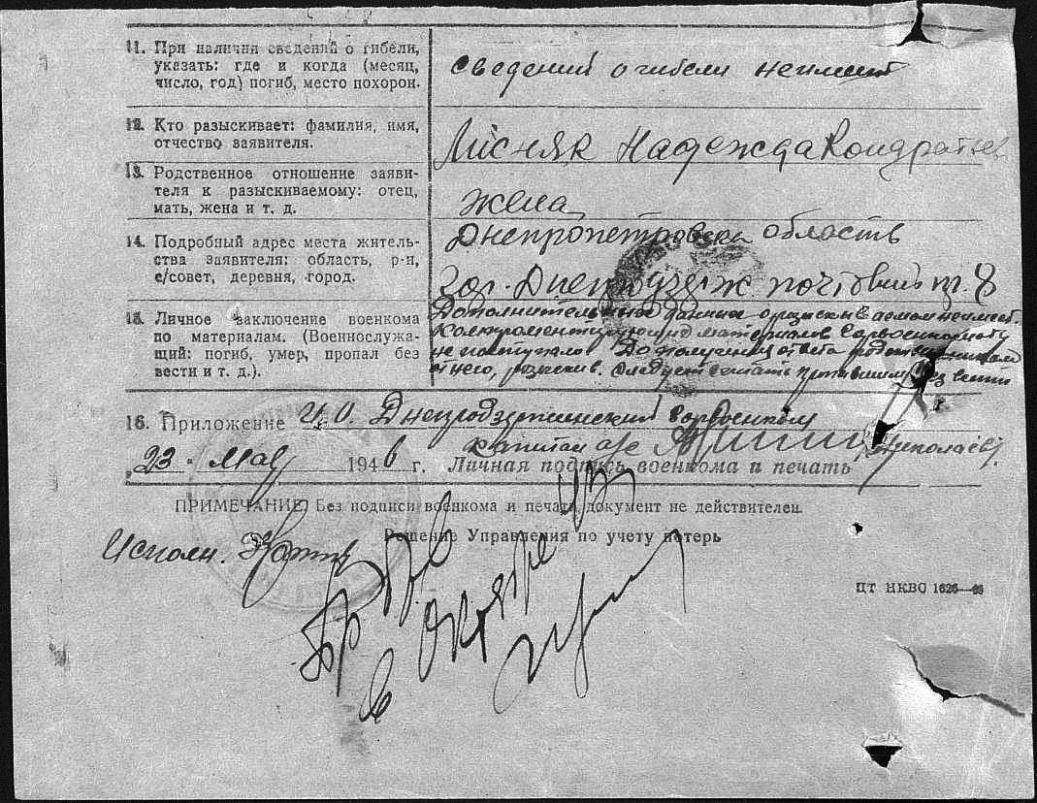 11. При наличии сведений о гибели,
указать: где и когда (месяц,
число, год) погиб, место похорон.
сведений о гибели неимеит
12. Кто разыскивает: фамилия, имя,
отчество заявителя.
Лісняк Надежда Кондратьев
13. Родственное отношение заяви-
теля к разыскиваемому: отец,
мать, жена и т. д.
жена
14. Подробный адрес места житель-
ства заявителя: область, р-н,
с/совет, деревня, город.
Днепропетровска область
гор. Днепродзерж. почтовый 8
15. Личное заключение военкома
по материалам. (Военнослужа-
щий: погиб, умер, пропал без
вести и т. д.).
Дополнительных данных о разыскиваемом неимеет.
Компроментирующид материалов Горвоенкомату
не поступало. До получения ответа
от него, следует считать пропавшим без вести
16. Приложение И.О. Днепродзержинский Горвоенком
капитан а/с Николаев
„23“ Мая 1946 г. Личная подпись военкома и печать
ПРИМЕЧАНИЕ: Без подписи военкома и печати документ не действителен.
Решение Управления по учету потерь
Исполн.
Пр
в октябре 43
ЦТ НКВО 1626